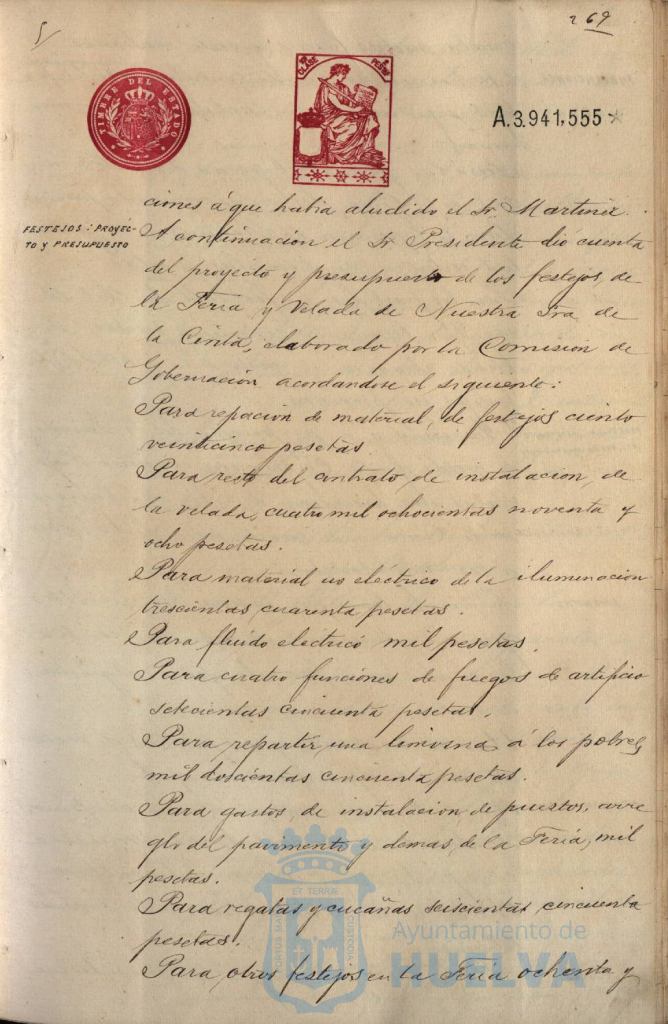 5
269
TIMBRE DEL ESTADO
CLASE
PESETA
A.3.941,555*
FESTEJOS: PROYEC-
TO y PRESUPUESTO
ciones á que habia aludido el Sr. Martinez.
A continuacion el Sr Presidente dió cuenta
del proyecto y presupuesto de los festejos, de
la Feria y Velada de Nuestra Sra de
la Cinta, elaborado por la Comision de
Gobernación acordandose el siguiente:
Para repacion de material, de festejos ciento
veinticinco pesetas.
Para resto del contrato, de instalacion, de
la velada, cuatro mil ochocientas noventa y
ocho pesetas.
Para material no eléctrico de la iluminacion
trescientas, cuarenta pesetas.
Para fluido electricó mil pesetas.
Para cuatro funciones de fuegos de artificio
setecientas cincuenta pesetas.
Para repartir una limosna á los pobres
mil doscientas cincuenta pesetas.
Para gastos, de instalacion de puestos, arre
glo del pavimento y demas, de la Feria, mil
pesetas.
Para regatas y cucañas seiscientas cincuenta
pesetas.
Para otros festejos en la Feria ochenta y
ET TERRAE
PORTUS MARIS
CUSTODIA
Ayuntamiento de
HUELVA